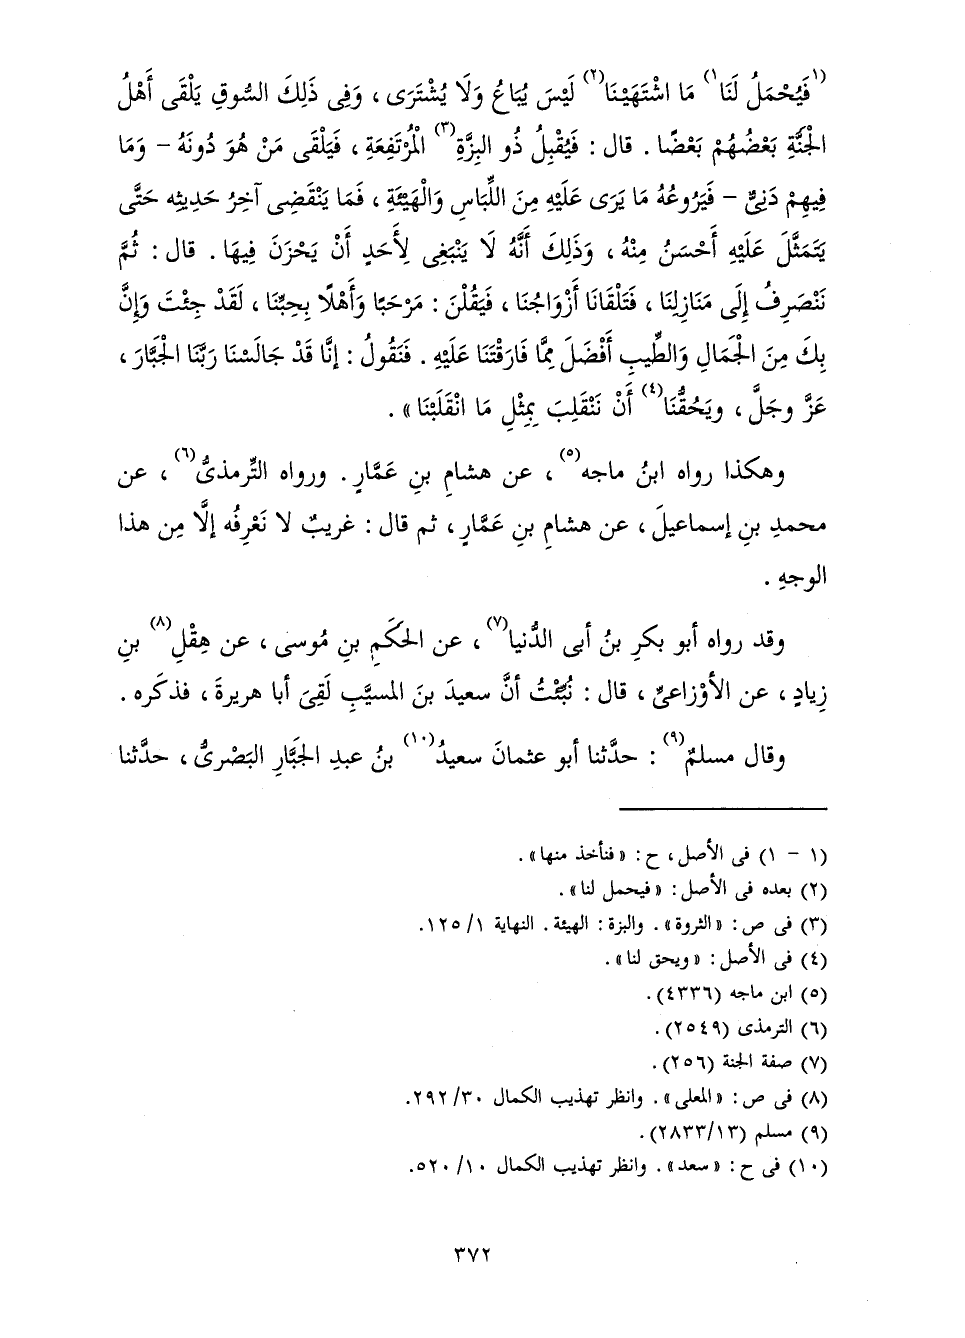 (١فَيُحْمَلُ لَنَا١) مَا اشْتَهَيْنَا(٢) لَيْسَ يُبَاعُ وَلَا يُشْتَرَى ، وَفِى ذَلِكَ السُّوقِ يَلْقَى أَهْلُ
الْجَنَّةِ بَعْضُهُمْ بَعْضًا . قال : فَيُقْبِلُ ذُو البِزَّةِ(٣) الْمُرْتَفِعَةِ ، فَيَلْقَى مَنْ هُوَ دُونَهُ - وَمَا
فِيهِمْ دَنِىٌّ - فَيَرُوعُهُ مَا يَرَى عَلَيْهِ مِنَ اللِّبَاسِ وَالْهَيْئَةِ ، فَمَا يَنْقَضِى آخِرُ حَدِيثِه حَتَّى
يَتَمَثَّلَ عَلَيْهِ أَحْسَنُ مِنْهُ ، وَذَلِكَ أَنَّهُ لَا يَنْبَغِى لِأَحَدٍ أَنْ يَحْزَنَ فِيهَا . قال : ثُمَّ
نَنْصَرِفُ إِلَى مَنَازِلِنَا ، فَتَلْقَانَا أَزْوَاجُنَا ، فَيَقُلْنَ : مَرْحَبًا وَأَهْلًا بِحِبِّنَا ، لَقَدْ جِئْتَ وَإِنَّ
بِكَ مِنَ الْجَمَالِ وَالطِّيبِ أَفْضَلَ مِمَّا فَارَقْتَنَا عَلَيْهِ . فَنَقُولُ : إِنَّا قَدْ جَالَسْنَا رَبَّنَا الْجَبَّارَ ،
عَزَّ وجَلَّ ، ويَحُقُّنَا(٤) أَنْ نَنْقَلِبَ بِمِثْلِ مَا انْقَلَبْنَا » .
وهكذا رواه ابنُ ماجه(٥) ، عن هشامِ بنِ عَمَّارٍ . ورواه التِّرمذىُّ(٦) ، عن
محمدِ بنِ إسماعيلَ ، عن هشامِ بنِ عَمَّارٍ ، ثم قال : غريبٌ لا نَعْرِفُه إلَّا مِن هذا
الوجهِ .
وقد رواه أبو بكرِ بنُ أبى الدُّنيا(٧) ، عن الحَكَمِ بنِ مُوسى ، عن هِقْلِ(٨) بنِ
زِيادٍ ، عن الأوْزاعىِّ ، قال : نُبِّئْتُ أنَّ سعيدَ بنَ المسيَّبِ لَقِىَ أبا هريرةَ ، فذكَره .
وقال مسلمٌ(٩) : حدَّثنا أبو عثمانَ سعيدُ(١٠) بنُ عبدِ الجَبَّارِ البَصْرىُّ ، حدَّثنا
(١ - ١) فى الأصل ، ح : « فنأخذ منها » .
(٢) بعده فى الأصل : « فيحمل لنا » .
(٣) فى ص : « الثروة » . والبزة : الهيئة . النهاية ١/ ١٢٥.
(٤) فى الأصل : « ويحق لنا » .
(٥) ابن ماجه (٤٣٣٦) .
(٦) الترمذى (٢٥٤٩) .
(٧) صفة الجنة (٢٥٦) .
(٨) فى ص : « المعلى » . وانظر تهذيب الكمال ٣٠/ ٢٩٢.
(٩) مسلم (٢٨٣٣/١٣) .
(١٠) فى ح : « سعد » . وانظر تهذيب الكمال ١٠/ ٥٢٠.
٣٧٢